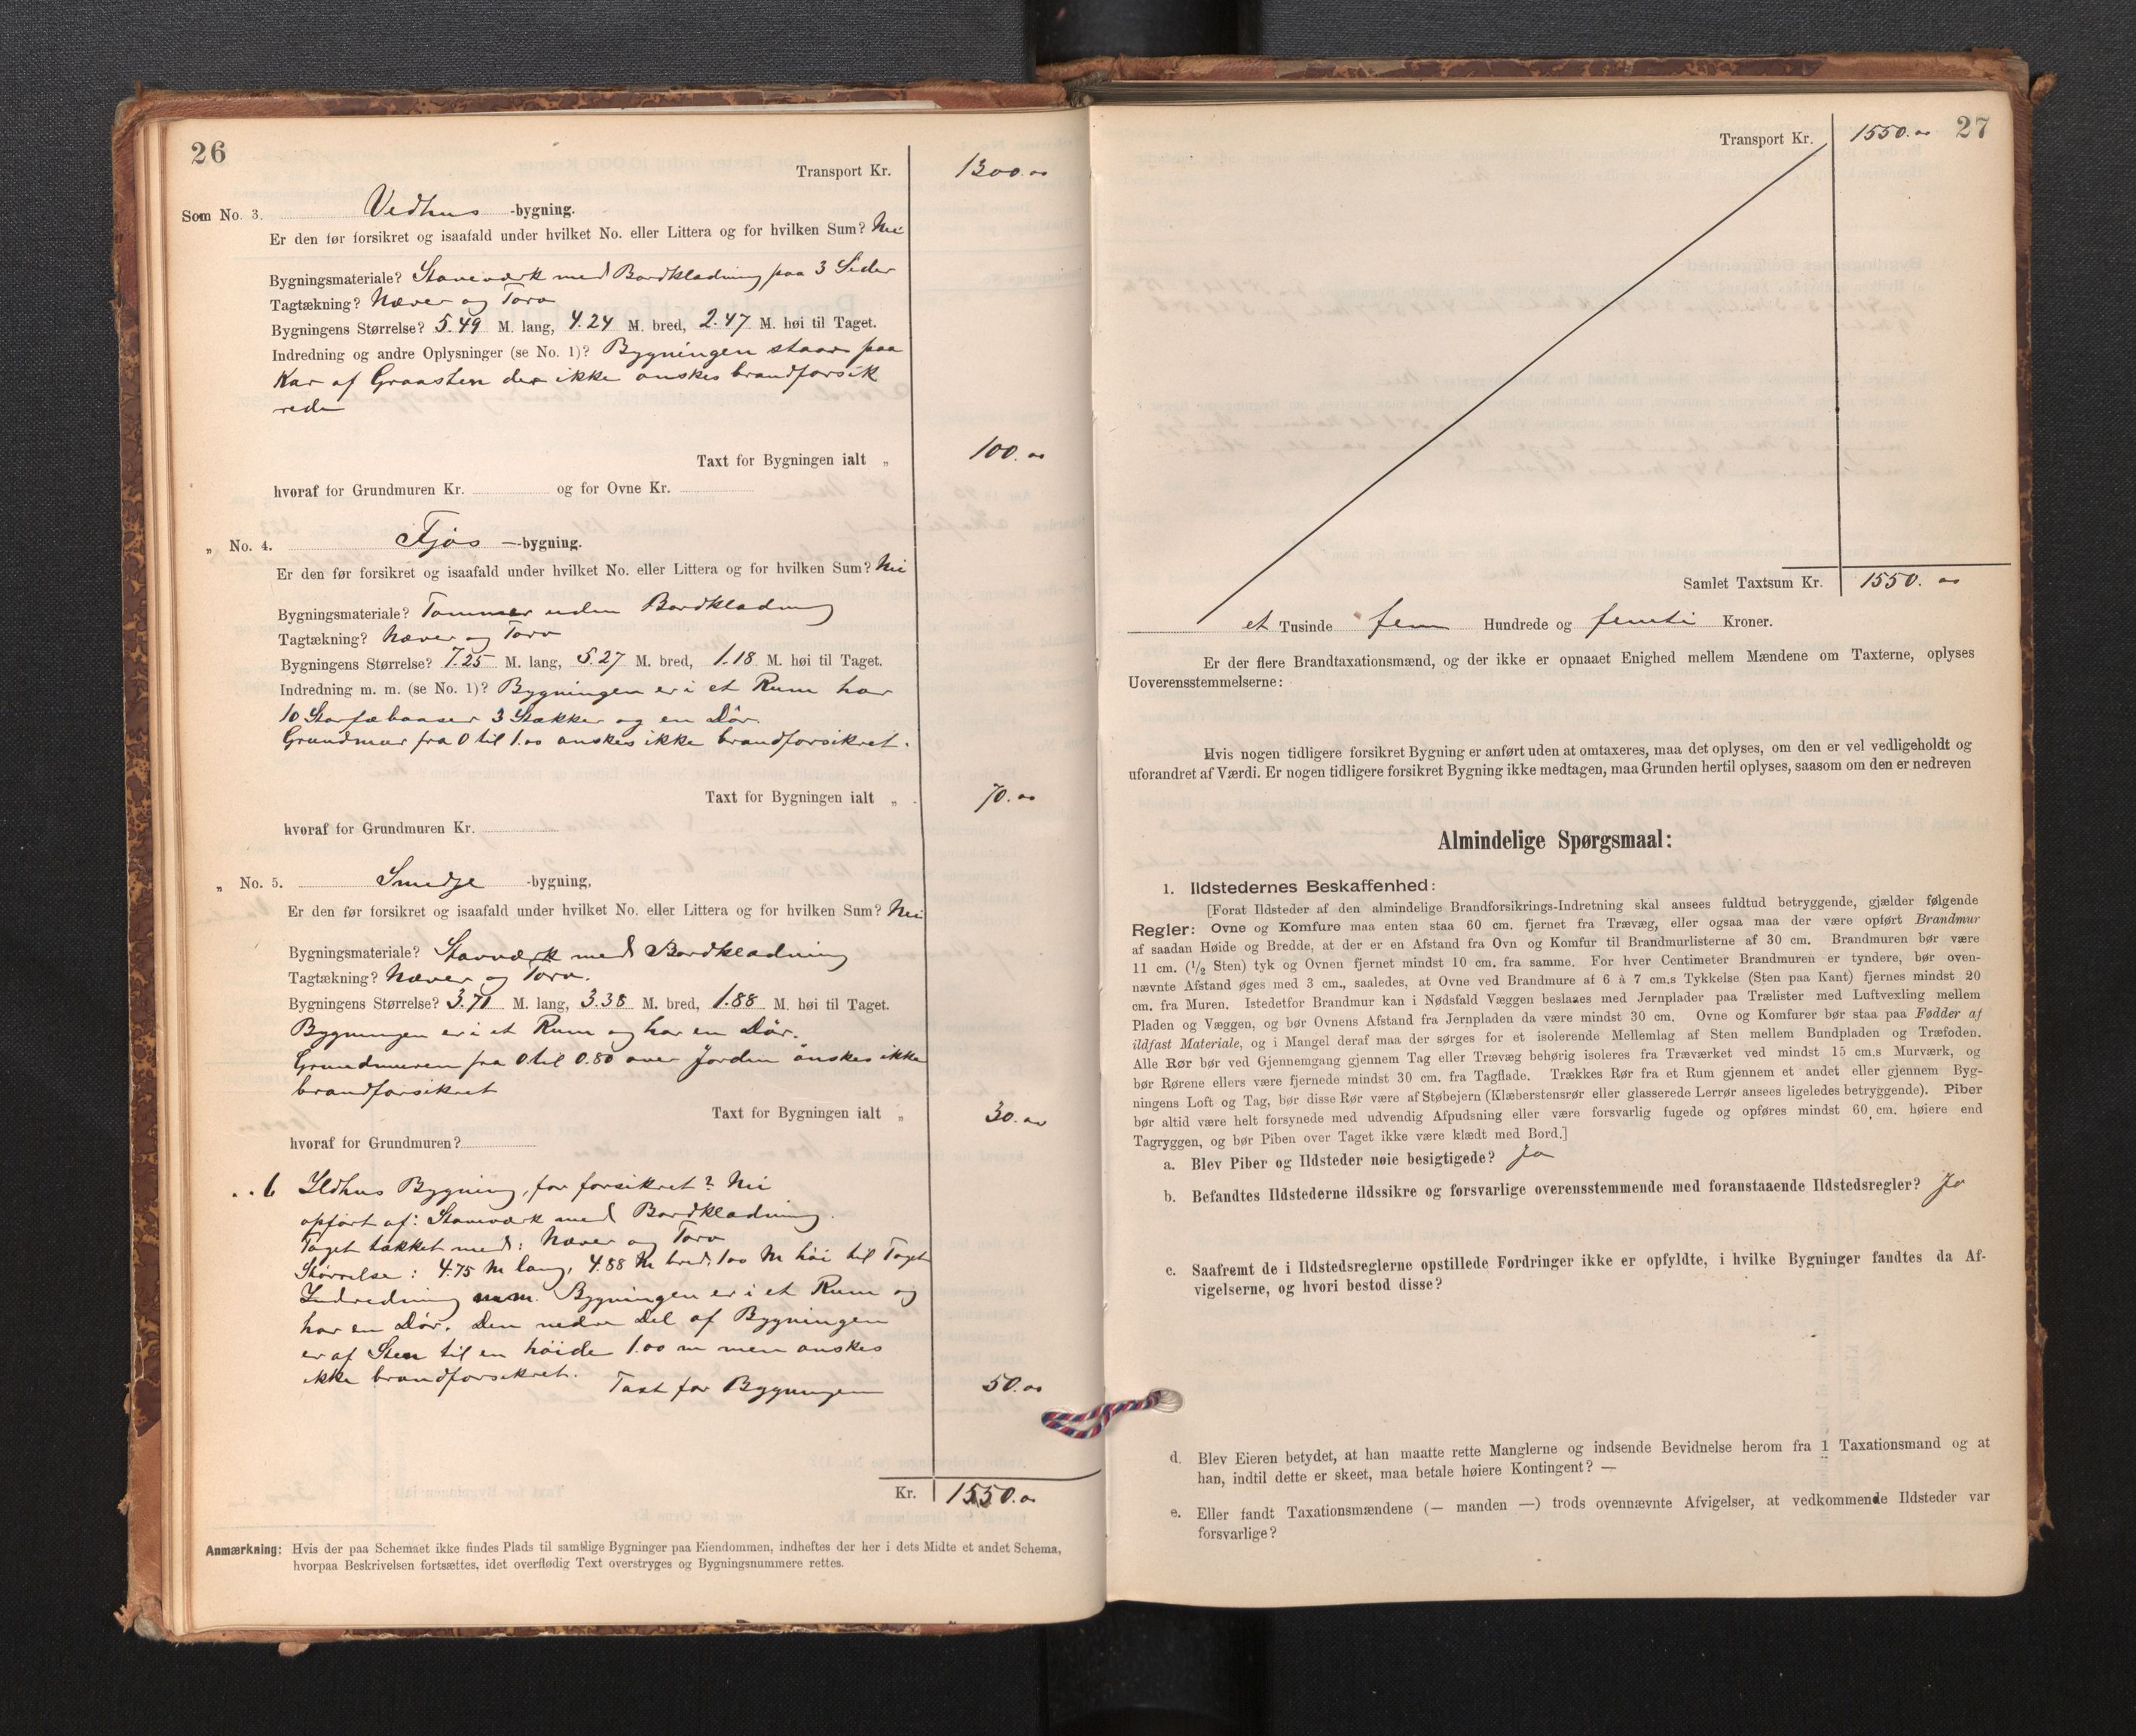 26
Transport Kr. 1300.00
Som No. 3. Vedhus -bygning.
Er den før forsikret og isaafald under hvilket No. eller Littera og for hvilken Sum? Nei
Bygningsmateriale? Staveværk med Bordklædning paa 3 Sider
Tagtækning? Næver og Torv
Bygningens Størrelse? 5.49 M. lang, 4.24 M. bred, 2.47 M. høi til Taget.
Indredning og andre Oplysninger (se No. 1)? Bygningen staar paa
Kar af Graasten der ikke ønskes brandforsik
rede
Taxt for Bygningen ialt „ 100.00
hvoraf for Grundmuren Kr. og for Ovne Kr.
„ No. 4. Fjøs -bygning.
Er den før forsikret og isaafald under hvilket No. eller Littera og for hvilken Sum? Nei
Bygningsmateriale? Tømmer uden Bordklædning
Tagtækning? Næver og Torv
Bygningens Størrelse? 7.25 M. lang, 5.27 M. bred, 1.18 M. høi til Taget.
Indredning m. m. (se No. 1)? Bygningen er i et Rum har
10 Storfæbaaser 3 Stækker og en Dör.
Grundmur fra 0 til 1.00 ønskes ikke brandforsikret.
Taxt for Bygningen ialt „ 70.00
hvoraf for Grundmuren Kr.
„ No. 5. Smedje -bygning,
Er den før forsikret og isaafald under hvilket No. eller Littera og for hvilken Sum? Nei
Bygningsmateriale? Stavværk med Bordklædning
Tagtækning? Næver og Torv.
Bygningens Størrelse? 3.71 M. lang, 3.38 M. bred, 1.88 M. høi til Taget.
Bygningen er i et Rum og har en Dör.
Grundmuren fra 0 til 0.80 over Jorden önskes ikke
brandforsikret
Taxt for Bygningen ialt „ 30.00
hvoraf for Grundmuren?
„ „ 6 Ildhus Bygning, før forsikret? Nei
opfört af: Staveværk med Bordklædning.
Taget tækket med: Næver og Torv
Störrelse: 4.75 M lang, 4.88 M bred, 1.00 M höi til Taget
Indredning m.m. Bygningen er i et Rum og
har en Dör. Den nedre Del af Bygningen
er af Sten til en höide 1.00 m men ønskes
ikke brandforsikret.
Taxt for Bygningen 50.00
Kr. 1550.00
Anmærkning: Hvis der paa Schemaet ikke findes Plads til samtlige Bygninger paa Eiendommen, indheftes der her i dets Midte et andet Schema,
hvorpaa Beskrivelsen fortsættes, idet overflødig Text overstryges og Bygningsnummere rettes.
27
Transport Kr. 1550.00
Samlet Taxtsum Kr. 1550.00
et Tusinde fem Hundrede og femti Kroner.
Er der flere Brandtaxationsmænd, og der ikke er opnaaet Enighed mellem Mændene om Taxterne, oplyses
Uoverensstemmelserne:
Hvis nogen tidligere forsikret Bygning er anført uden at omtaxeres, maa det oplyses, om den er vel vedligeholdt og
uforandret af Værdi. Er nogen tidligere forsikret Bygning ikke medtagen, maa Grunden hertil oplyses, saasom om den er nedreven
Almindelige Spørgsmaal:
1. Ildstedernes Beskaffenhed:
[Forat Ildsteder af den almindelige Brandforsikrings-Indretning skal ansees fuldtud betryggende, gjælder følgende
Regler: Ovne og Komfure maa enten staa 60 cm. fjernet fra Trævæg, eller ogsaa maa der være opført Brandmur
af saadan Høide og Bredde, at der er en Afstand fra Ovn og Komfur til Brandmurlisterne af 30 cm. Brandmuren bør være
11 cm. (1/2 Sten) tyk og Ovnen fjernet mindst 10 cm. fra samme. For hver Centimeter Brandmuren er tyndere, bør oven-
nævnte Afstand øges med 3 cm., saaledes, at Ovne ved Brandmure af 6 à 7 cm.s Tykkelse (Sten paa Kant) fjernes mindst 20
cm. fra Muren. Istedetfor Brandmur kan i Nødsfald Væggen beslaaes med Jernplader paa Trælister med Luftvexling mellem
Pladen og Væggen, og bør Ovnens Afstand fra Jernpladen da være mindst 30 cm. Ovne og Komfurer bør staa paa Fødder af
ildfast Materiale, og i Mangel deraf maa der sørges for et isolerende Mellemlag af Sten mellem Bundpladen og Træfoden.
Alle Rør bør ved Gjennemgang gjennem Tag eller Trævæg behørig isoleres fra Træværket ved mindst 15 cm.s Murværk, og
bør Rørene ellers være fjernede mindst 30 cm. fra Tagflade. Trækkes Rør fra et Rum gjennem et andet eller gjennem Byg-
ningens Loft og Tag, bør disse Rør være af Støbejern (Klæberstensrør eller glasserede Lerrør ansees ligeledes betryggende). Piber
bør altid være helt forsynede med udvendig Afpudsning eller være forsvarlig fugede og opføres mindst 60 cm. høiere end
Tagryggen, og bør Piben over Taget ikke være klædt med Bord.]
a. Blev Piber og Ildsteder nøie besigtigede? Ja
b. Befandtes Ildstederne ildssikre og forsvarlige overensstemmende med foranstaaende Ildstedsregler? Ja
c. Saafremt de i Ildstedsreglerne opstillede Fordringer ikke er opfyldte, i hvilke Bygninger fandtes da Af-
vigelserne, og hvori bestod disse?
d. Blev Eieren betydet, at han maatte rette Manglerne og indsende Bevidnelse herom fra 1 Taxationsmand og at
han, indtil dette er skeet, maa betale høiere Kontingent? —
e. Eller fandt Taxationsmændene (— manden —) trods ovennævnte Afvigelser, at vedkommende Ildsteder var
forsvarlige?